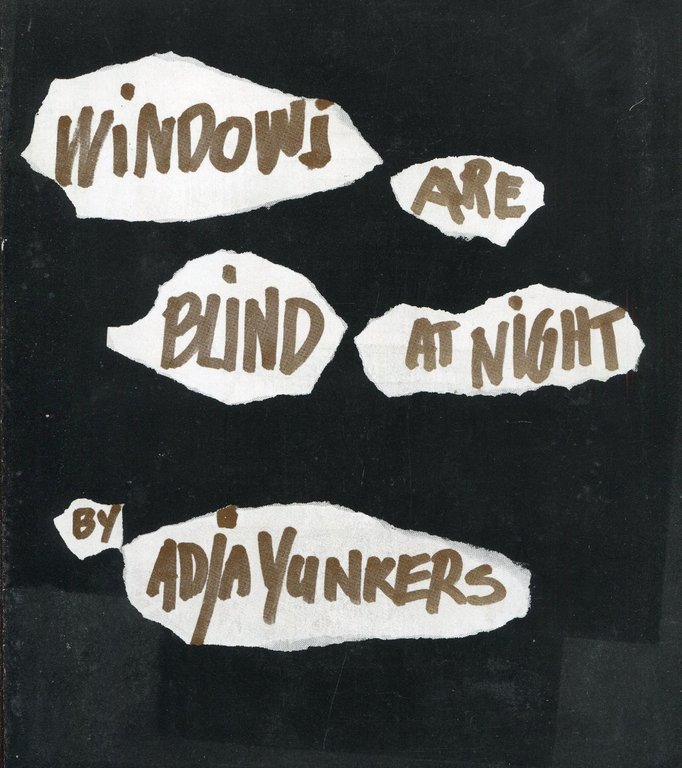 WiNDOWs ARE
BLiND AT NiGHT
BY ADjA YUNKERS